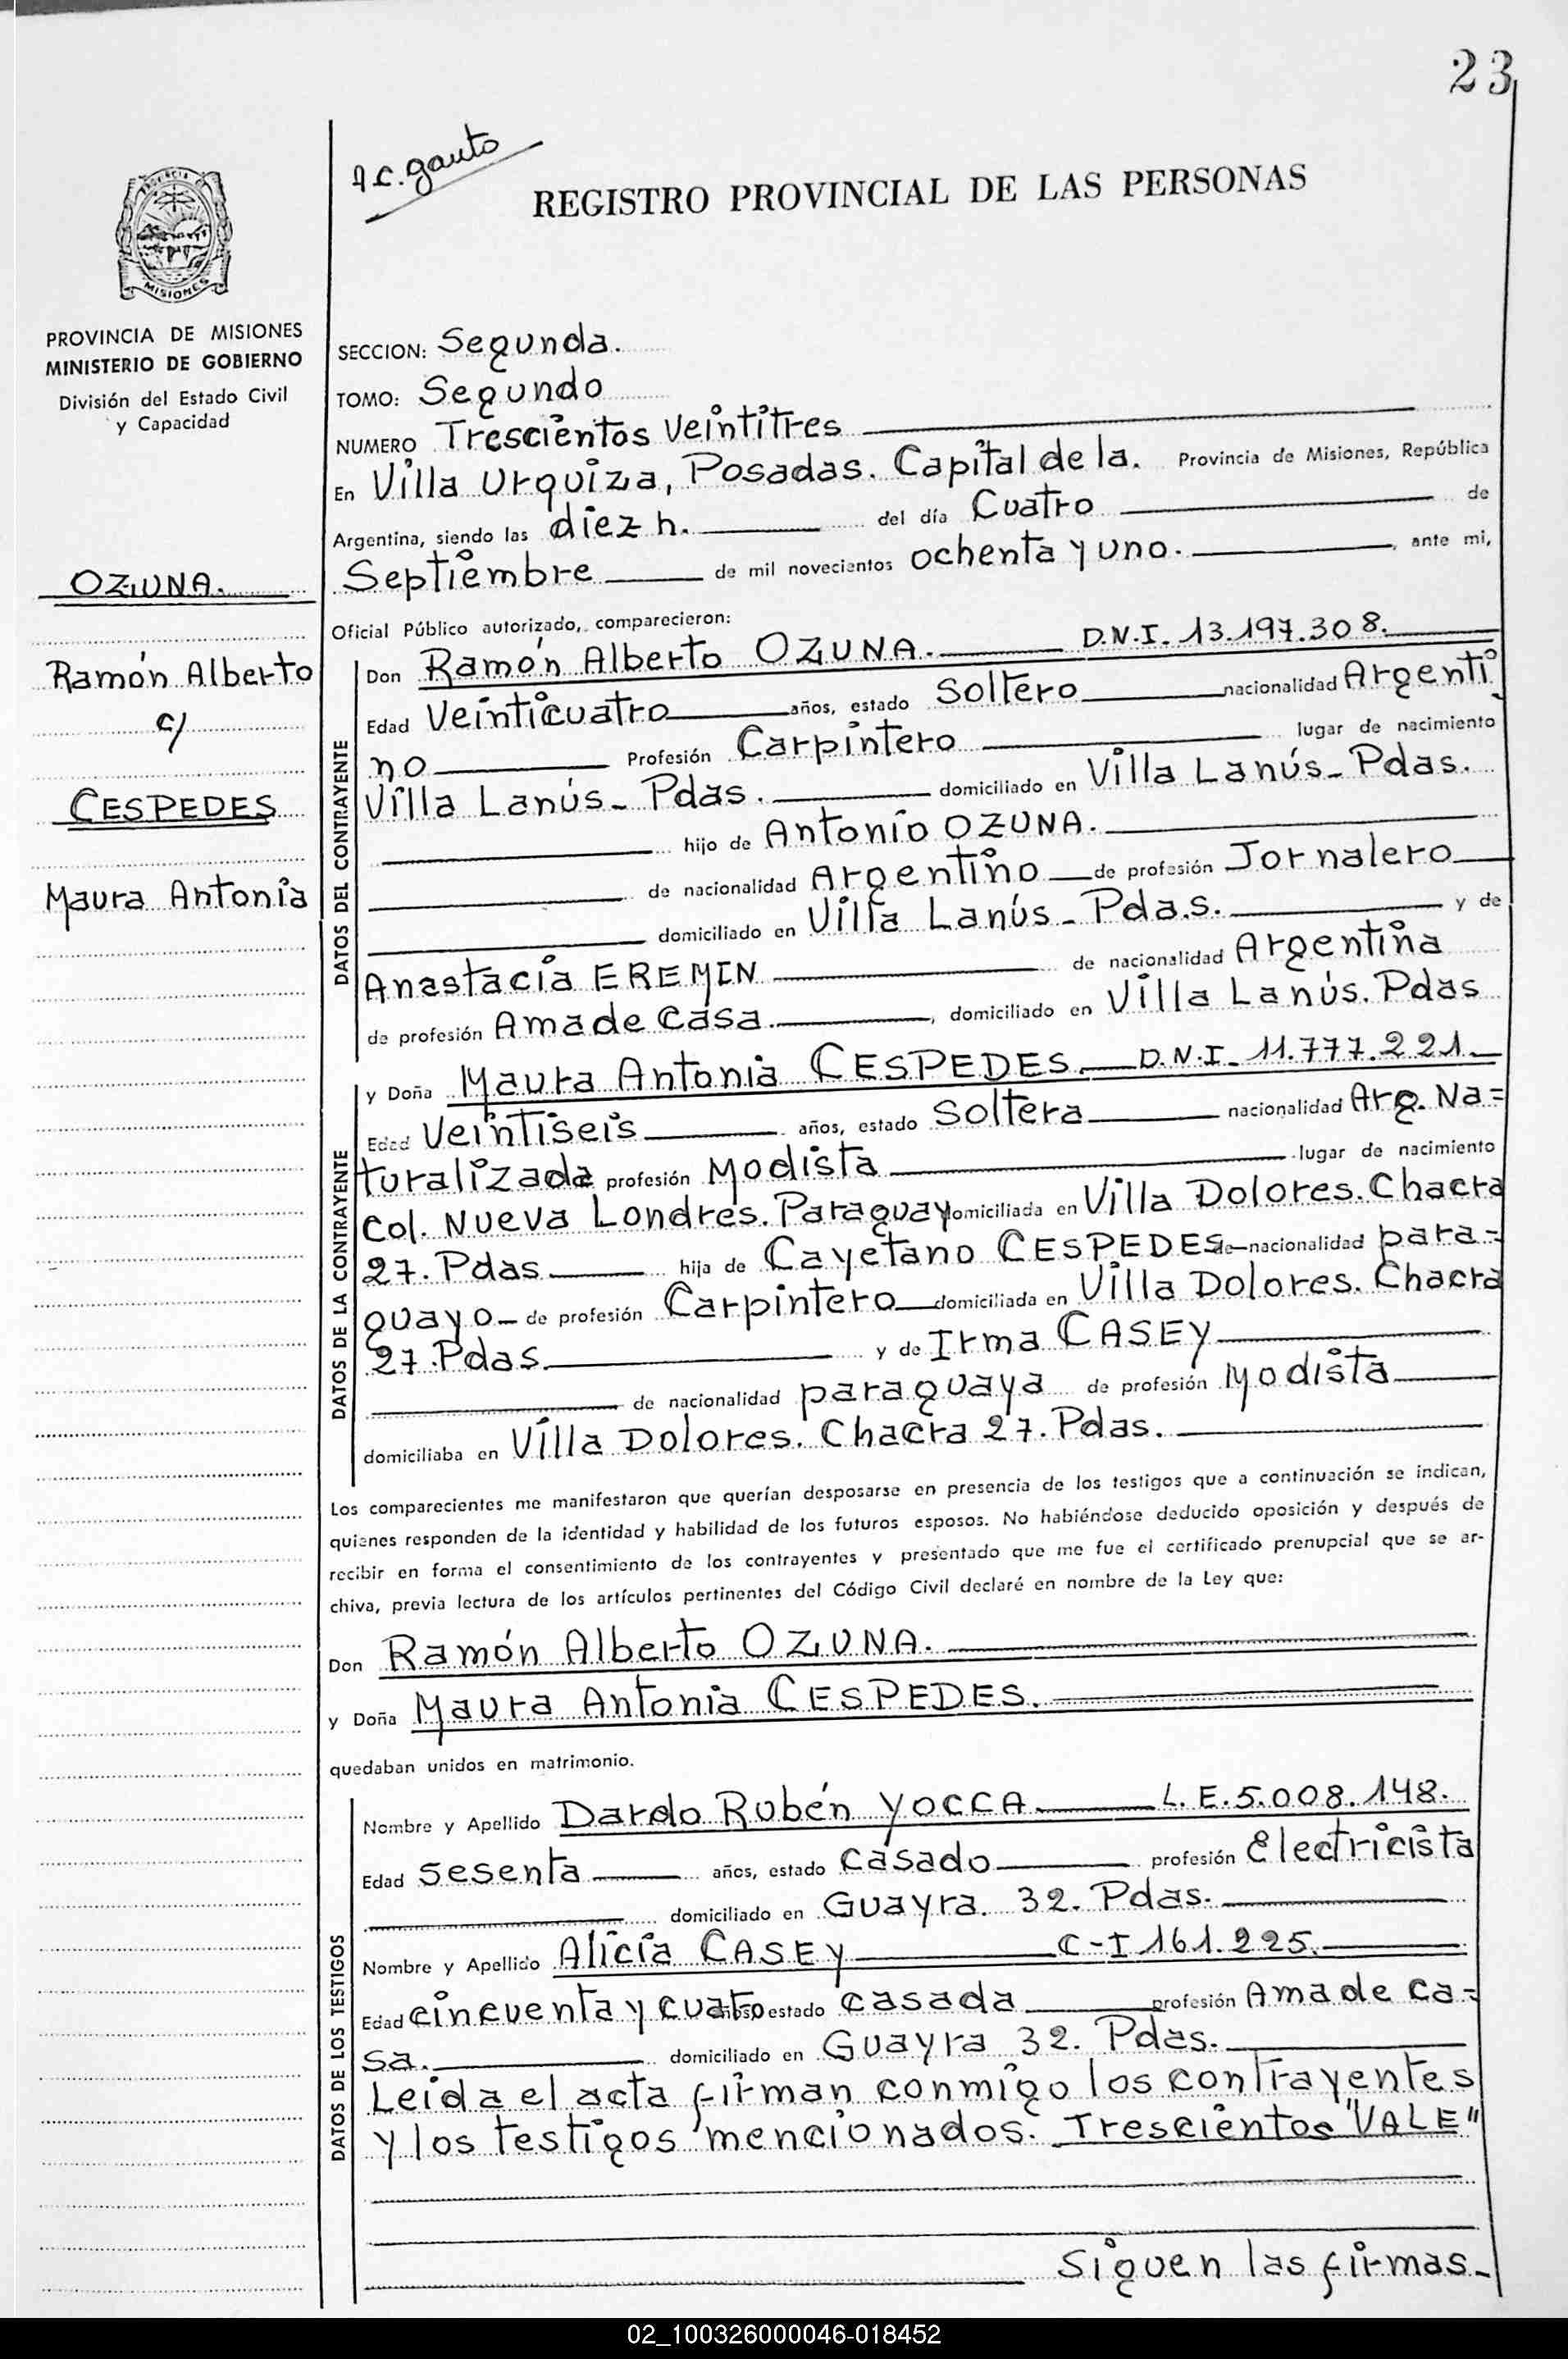 23
A c. gauto
REGISTRO PROVINCIAL DE LAS PERSONAS
PROVINCIA
MISIONES
PROVINCIA DE MISIONES
MINISTERIO DE GOBIERNO
División del Estado Civil
y Capacidad
OZUNA.
Ramón Alberto
c/
CESPEDES
Maura Antonia
SECCION: Segunda.
TOMO: Segundo
NUMERO Trescientos Veintitres
En Villa Urquiza, Posadas. Capital de la. Provincia de Misiones, República
Argentina, siendo las diez h. del día Cuatro de
Septiembre de mil novecientos ochenta y uno. , ante mi,
Oficial Público autorizado, comparecieron:
DATOS DEL CONTRAYENTE
Don Ramón Alberto OZUNA. D.N.I. 13.197.308.
Edad Veinticuatro años, estado Soltero nacionalidad Argenti
no Profesión Carpintero lugar de nacimiento
Villa Lanús- Pdas. domiciliado en Villa Lanús- Pdas.
hijo de Antonio OZUNA.
de nacionalidad Argentino de profesión Jornalero
domiciliado en Villa Lanús- Pdas. y de
Anastacia EREMIN de nacionalidad Argentina
de profesión Ama de Casa. , domiciliado en Villa Lanús. Pdas
DATOS DE LA CONTRAYENTE
y Doña Maura Antonia CESPEDES. D.N.I. 11.777.221.
Edad Veintiseis años, estado Soltera nacionalidad Arg. Na=
turalizada profesión Modista lugar de nacimiento
Col. Nueva Londres. Paraguay domiciliada en Villa Dolores. Chacra
27. Pdas hija de Cayetano CESPEDES de nacionalidad para=
guayo- de profesión Carpintero domiciliada en Villa Dolores. Chacra
27. Pdas y de Irma CASEY
de nacionalidad paraguaya de profesión Modista
domiciliaba en Villa Dolores. Chacra 27. Pdas.
Los comparecientes me manifestaron que querían desposarse en presencia de los testigos que a continuación se indican,
quienes responden de la identidad y habilidad de los futuros esposos. No habiéndose deducido oposición y después de
recibir en forma el consentimiento de los contrayentes y presentado que me fue el certificado prenupcial que se ar-
chiva, previa lectura de los artículos pertinentes del Código Civil declaré en nombre de la Ley que:
Don Ramón Alberto OZUNA.
y Doña Maura Antonia CESPEDES.
quedaban unidos en matrimonio.
DATOS DE LOS TESTIGOS
Nombre y Apellido Dardo Rubén YOCCA L. E. 5.008.148.
Edad Sesenta años, estado Casado profesión Electricista
domiciliado en Guayra. 32. Pdas.
Nombre y Apellido Alicia CASEY C-I 161.225.
Edad cincuenta y cuatro estado Casada profesión Ama de Ca=
sa. domiciliado en Guayra 32. Pdas.
Leida el acta firman conmigo los contrayentes
y los testigos mencionados. Trescientos "VALE"
Siguen las firmas-
02_100326000046-018452